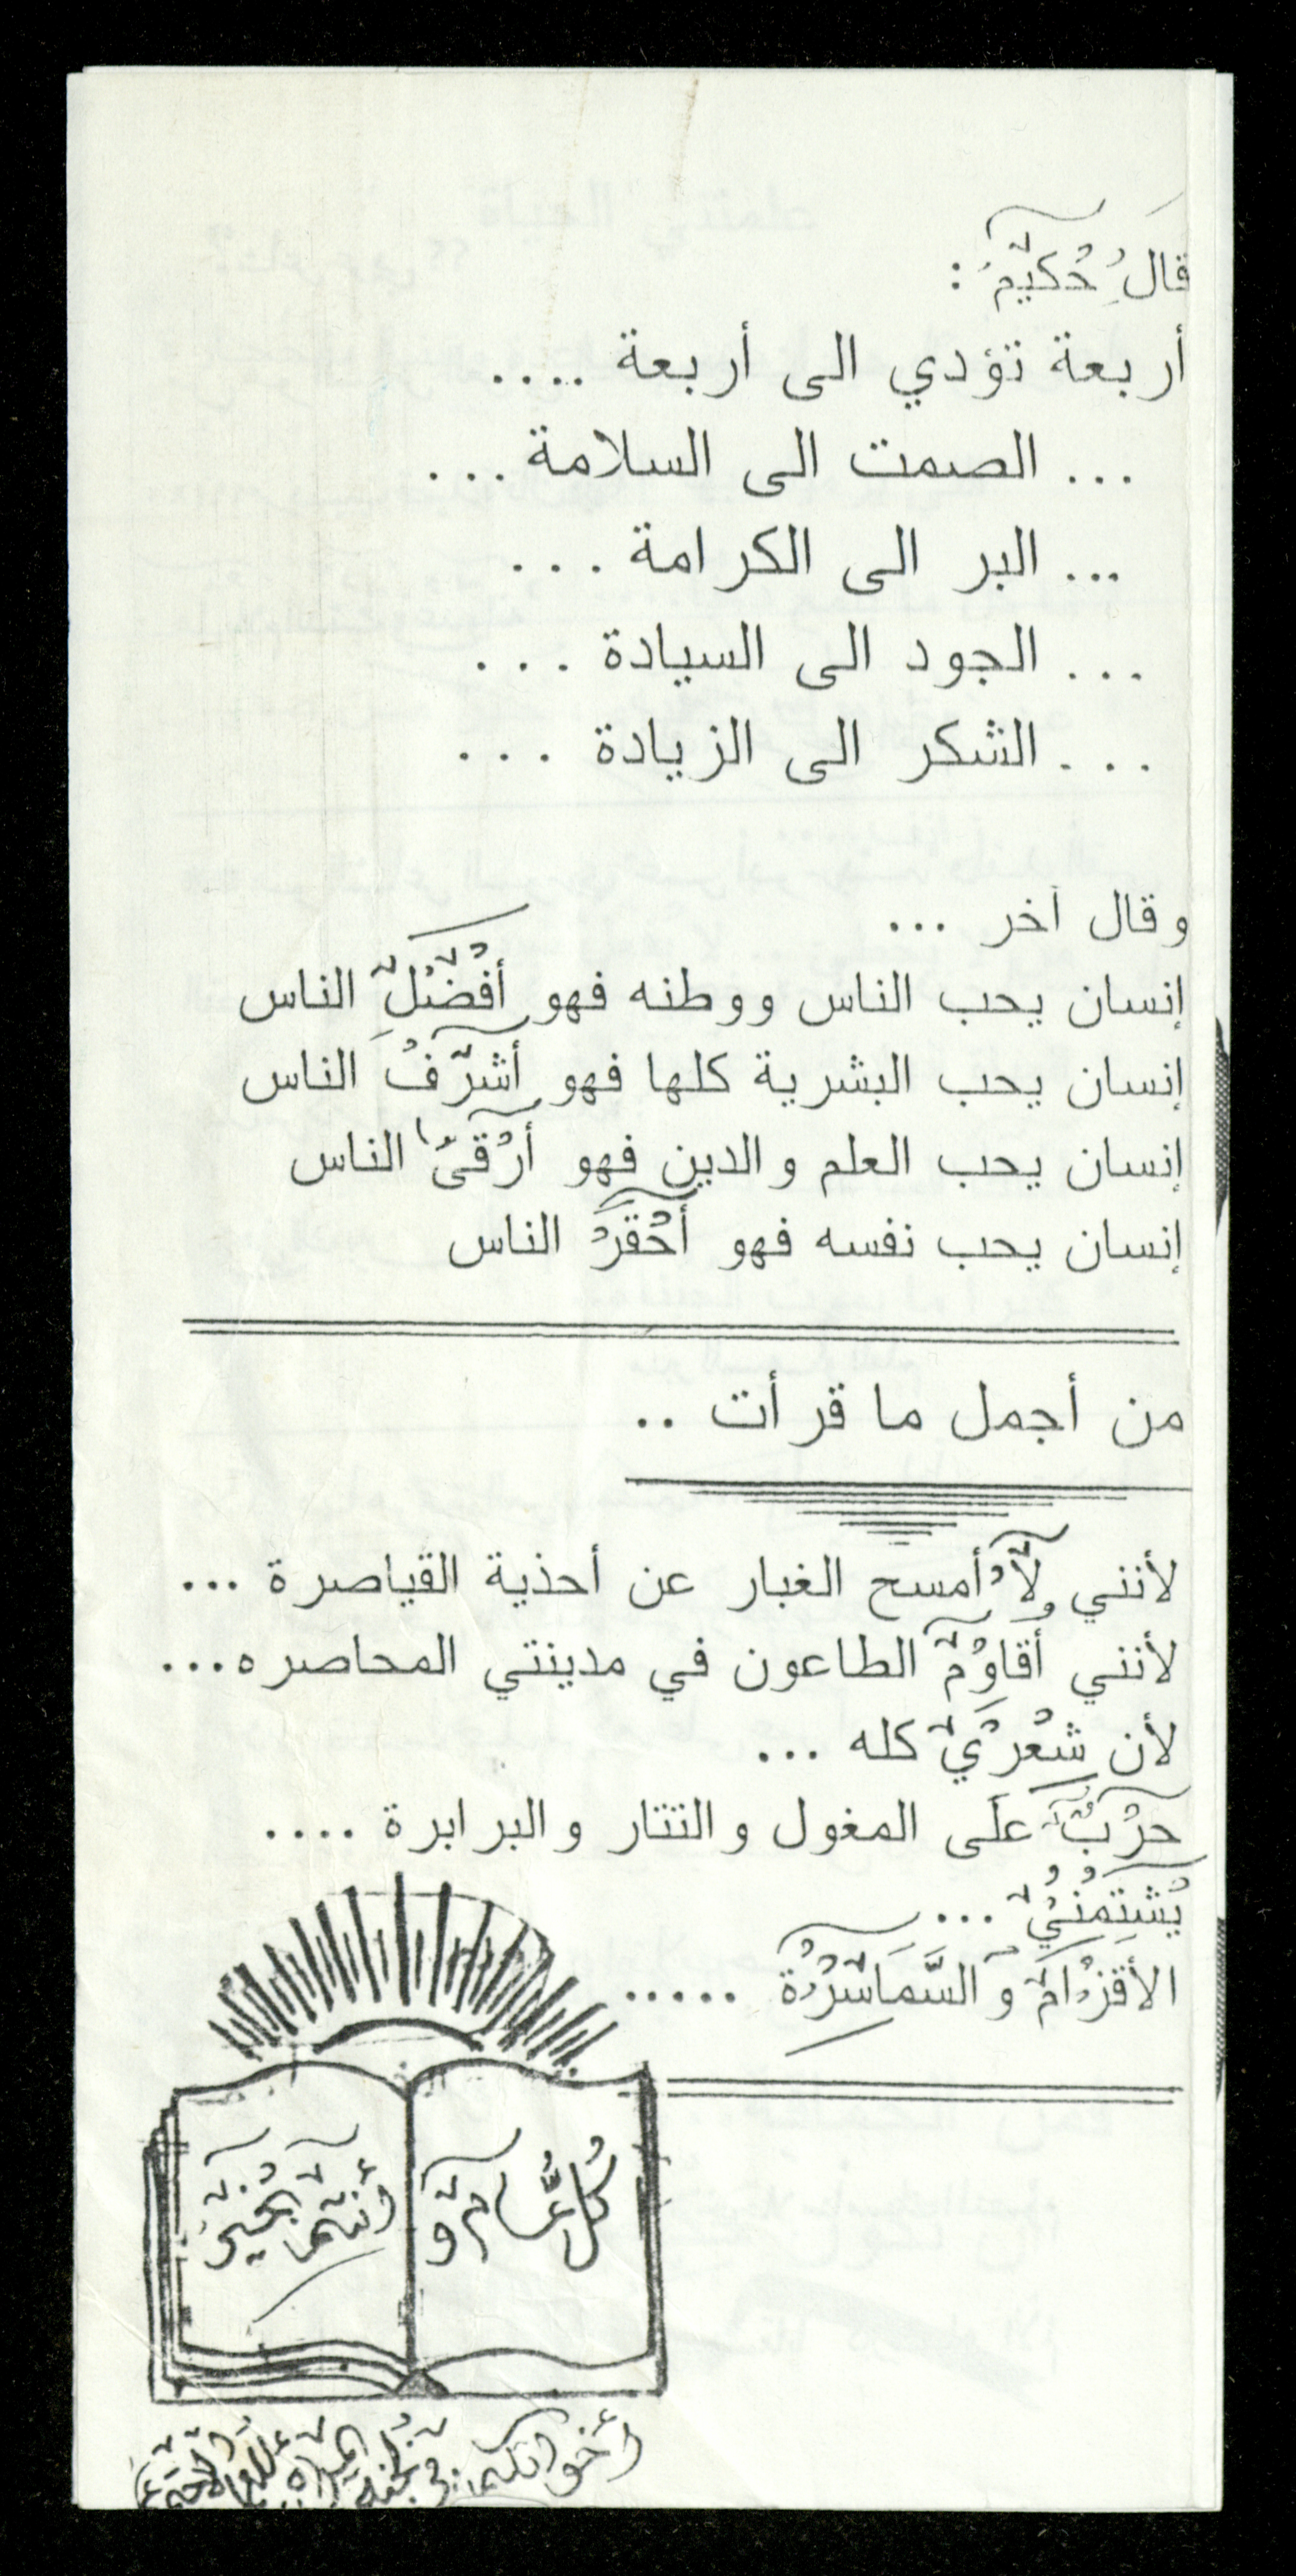 قال حكيم :
أربعة تؤدي الى أربعة ....
... الصمت الى السلامة ...
... البر الى الكرامة ...
... الجود الى السيادة ...
... الشكر الى الزيادة ...
وقال آخر ...
إنسان يحب الناس ووطنه فهو أفضل الناس
إنسان يحب البشرية كلها فهو أشرف الناس
إنسان يحب العلم والدين فهو أرقى الناس
إنسان يحب نفسه فهو أحقر الناس
من أجمل ما قرأت ..
لأنني لا أمسح الغبار عن أحذية القياصرة ...
لأنني أقاوم الطاعون في مدينتي المحاصره...
لأن شعري كله ...
حرب على المغول والتتار والبرابرة ....
يشتمني ...
الأقزام والسماسرة .....
كل عام و
أنتم بخير
أخواتكم في لجنة المرأة للعمل الاجتماعي